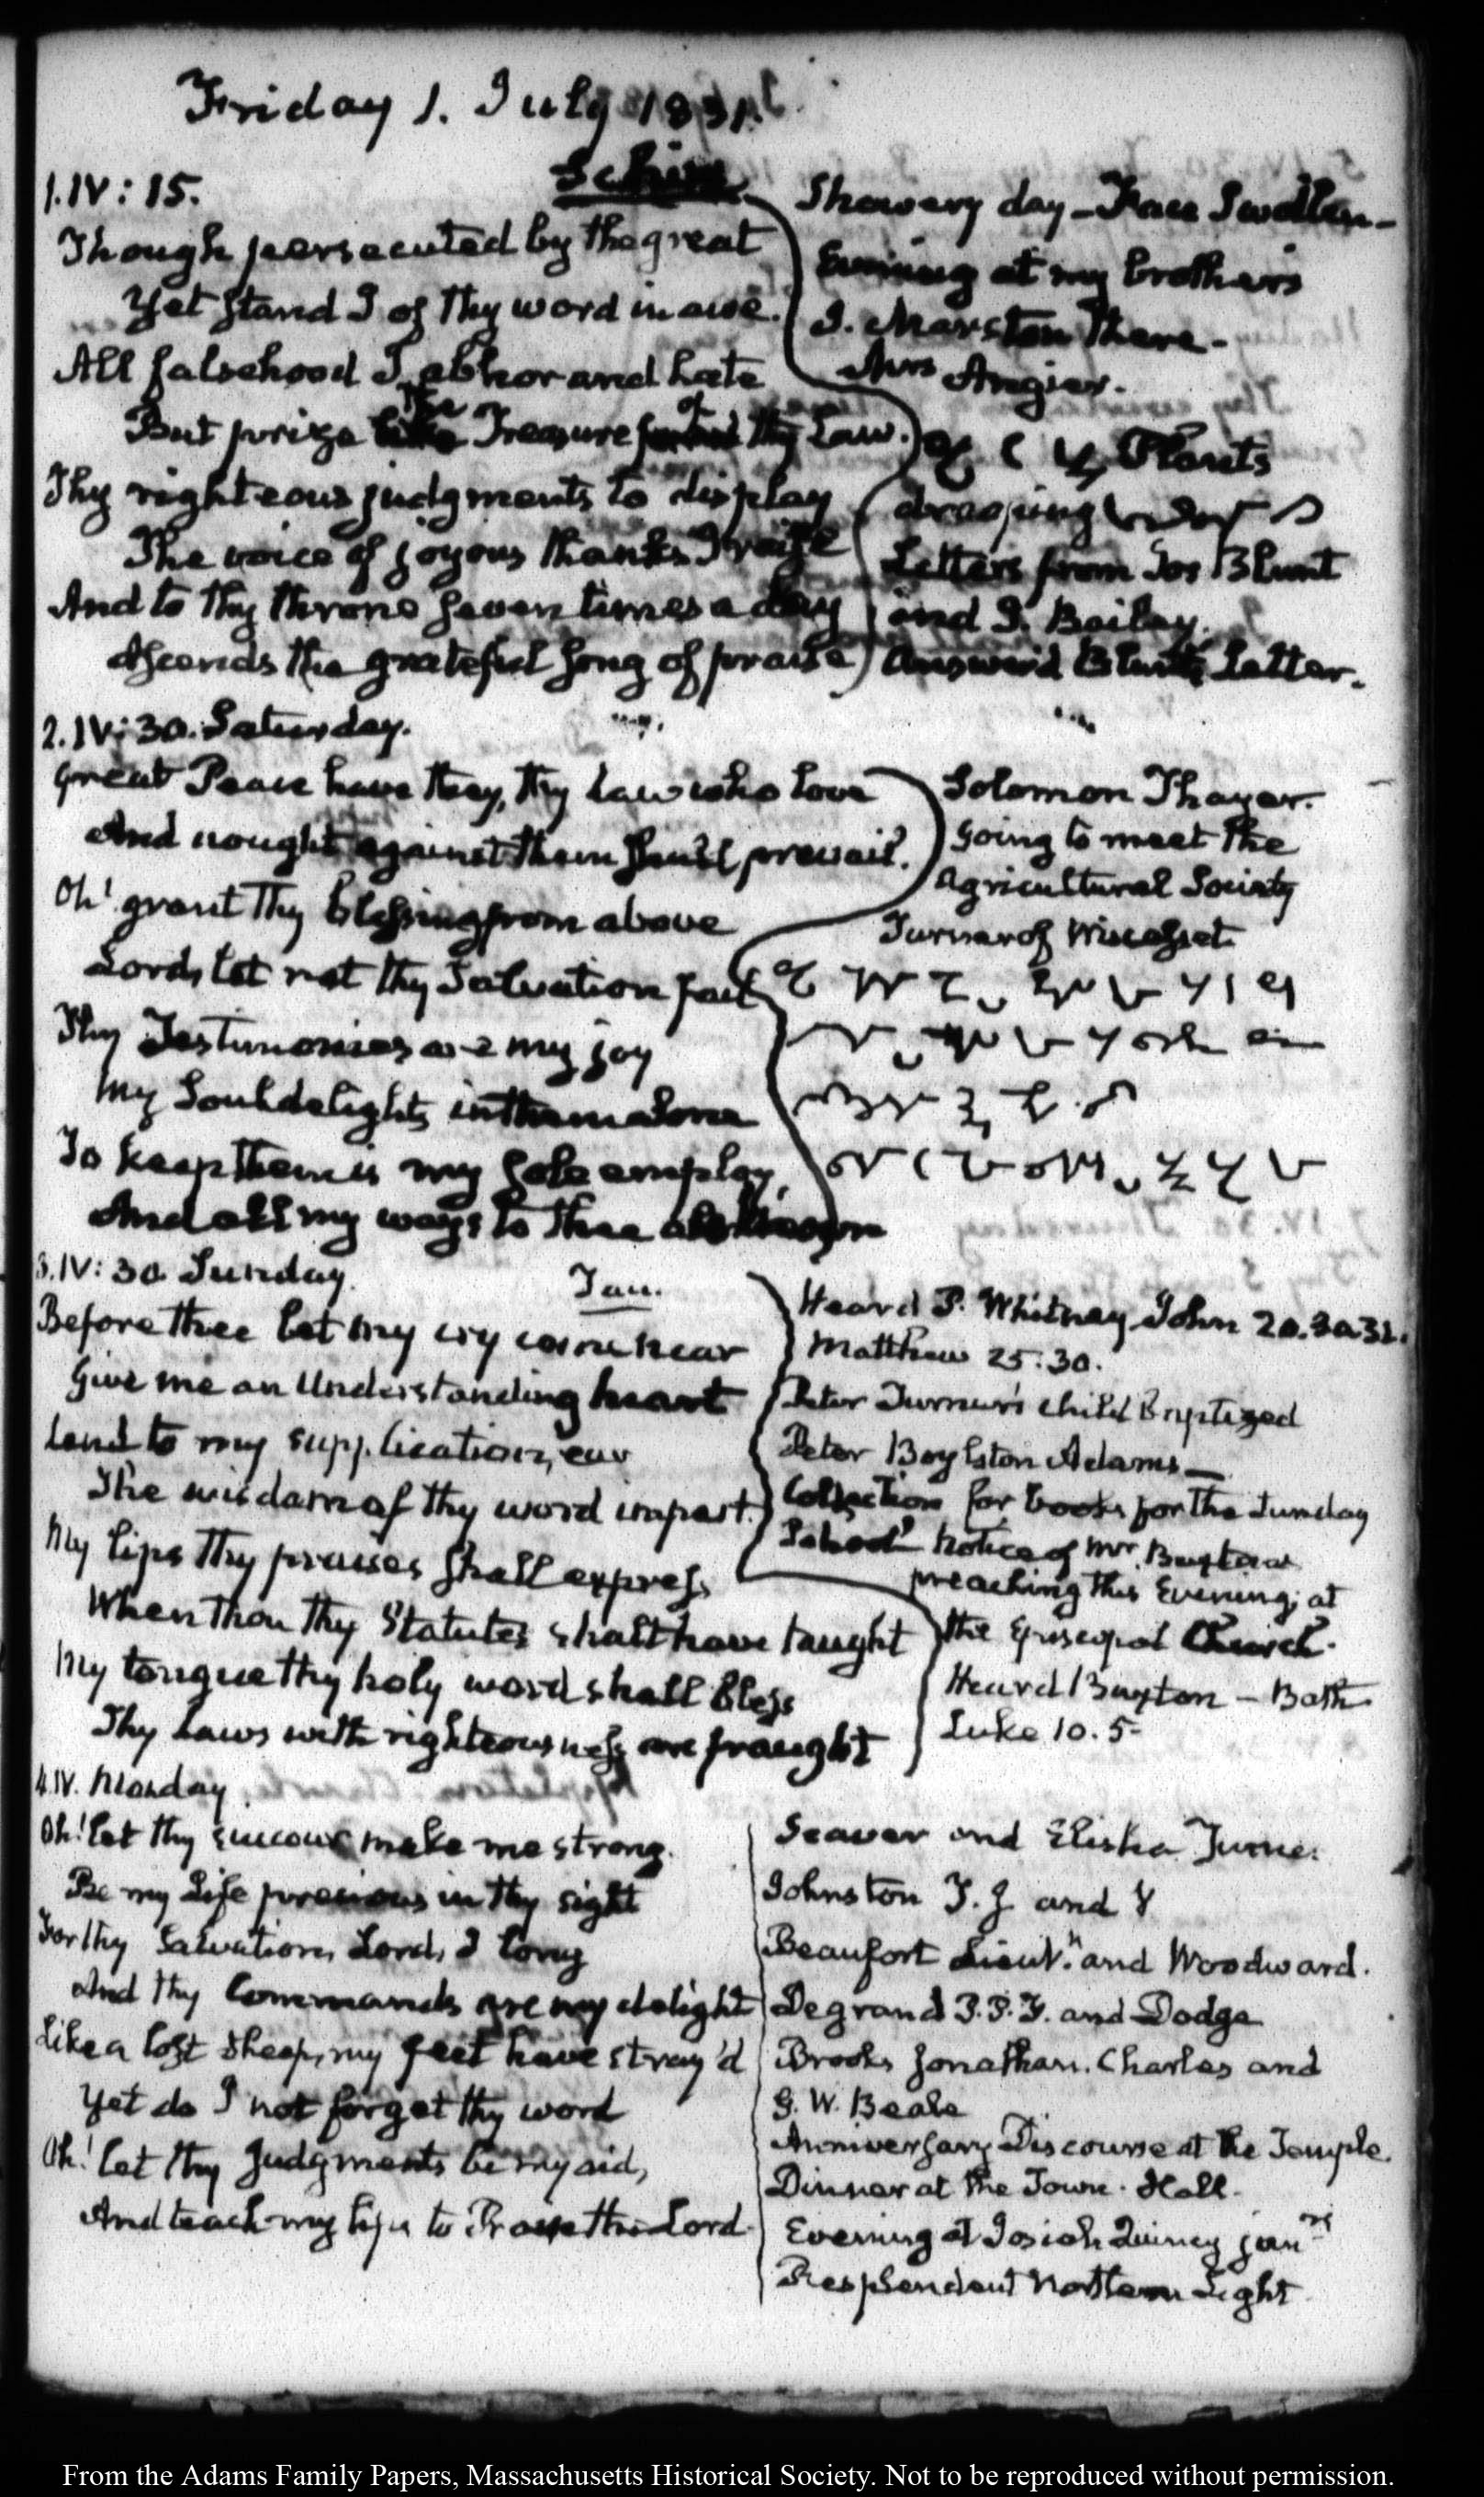 Friday 1. July 1831.
1.IV:15.
Schin
Though persecuted by the great
Yet stand I of thy word in awe.
All falsehood I abhor and hate
But prize the Treasure of thy Law.
Thy righteous judgments to display
The voice of joyous thanks I raise
And to thy throne seven times a day
Ascends the grateful song of praise
Showery day – Face Swollen –
Evening at my brother's
J. Marston there –
Mrs Angier.
Plants
drooping
Letters from Jos Blunt
and J. Bailey.
Answered Blunt's Letter.
2.IV:30. Saturday.
Great Peace have they, thy Law who love
And nought against them shall prevail.
Oh! grant thy blessing from above
Lord, let not thy Salvation fail
Thy Testimonies are my joy
My Soul delights in them alone
To keep them is my sole employ,
And all my ways to thee are known
Solomon Thayer.
Going to meet the
Agricultural Society
Turner of Wiscasset
3.IV:30 Sunday.
Tau.
Before thee let my cry come near
Give me an Understanding heart
Lend to my supplication, ear
The wisdom of thy word impart.
My lips thy praises shall express
When thou thy Statutes shalt have taught
My tongue thy holy word shall bless
Thy Laws with righteousness are fraught
Heard P. Whitney John 20.30.31.
Matthew 25.30.
Peter Turner's child Baptized
Peter Boylston Adams –
Collection for books for the Sunday
School Notice of Mr. Buxton
preaching this Evening, at
the Episcopal Church.
Heard Buxton – Bath
Luke 10.5
4.IV. Monday
Oh! let thy succour make me strong.
Be my Life precious in thy sight
For thy Salvation, Lord, I long
And thy Commands are my delight
Like a lost sheep, my feet have stray'd
Yet do I not forget thy word
Oh! let thy Judgments be my aid,
And teach my lips to Praise the Lord.
Seaver and Elisha Turner
Johnston F.J and Y
Beaufort Lieut. and Woodward.
Degrand P.P.F. and Dodge
Brooks Jonathan. Charles and
G. W. Beale
Anniversary Discourse at the Temple.
Dinner at the Town. Hall.
Evening at Josiah Quincy junr's
Resplendent Northern Light
From the Adams Family Papers, Massachusetts Historical Society. Not to be reproduced without permission.